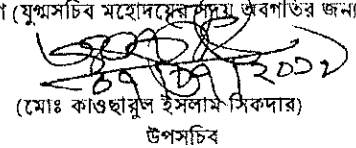 (যুগ্মসচিব মহোদয়ের সদয় অবগতির জন্য
(মোঃ কাওছারুল ইসলাম সিকদার)
উপসচিব